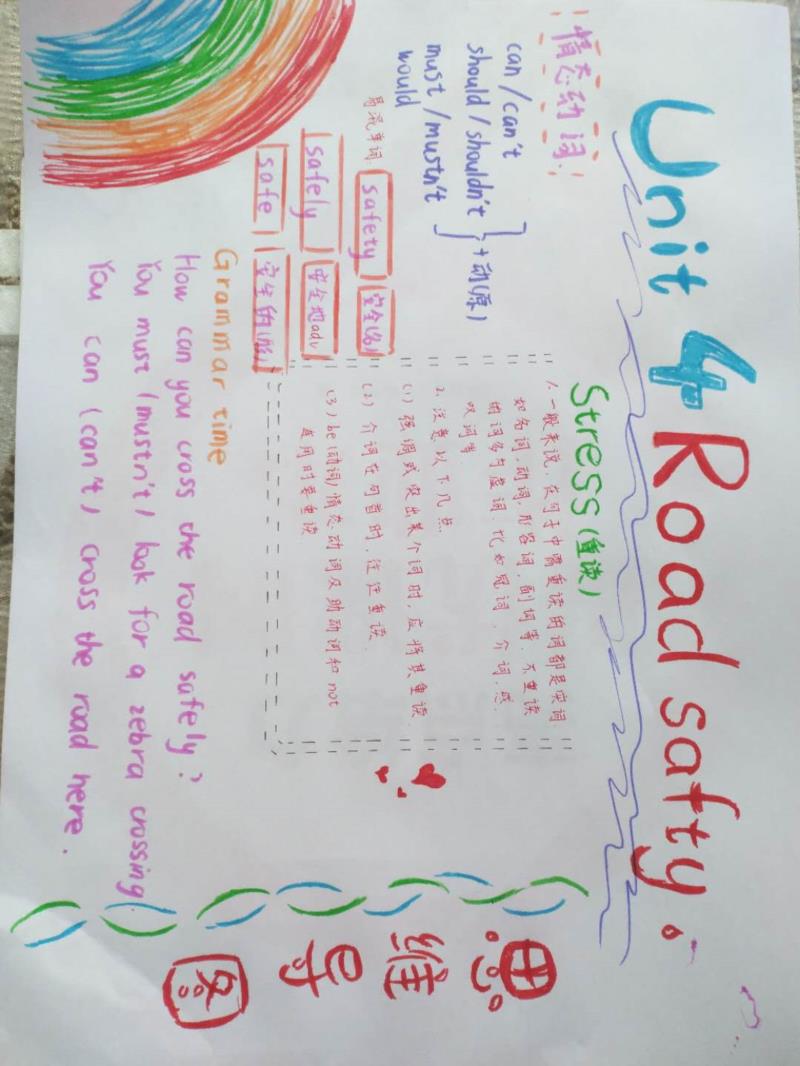 Unit 4 Road safty.
情态动词
can/can't
should/shouldn't
must/mustn't
would
+动(原)
易混单词:
safety 安全(名)
safely 安全地adv
safe 安全的(形)
Stress(重读)
1.一般来说,在句子中需重读的词都是实词
如名词,动词,形容词,副词等.不重读
的词多为虚词.比如冠词,介词,感
叹词等.
2.注意以下几点
(1)强调或突出某个词时,应将其重读.
(2)介词在句首时,往往重读.
(3)be(动词)情态动词及助动词和not
连用时要重读
Grammar time
How can you cross the road safely?
You must (mustn't) look for a zebra crossing
You can (can't) cross the road here.
思维导图